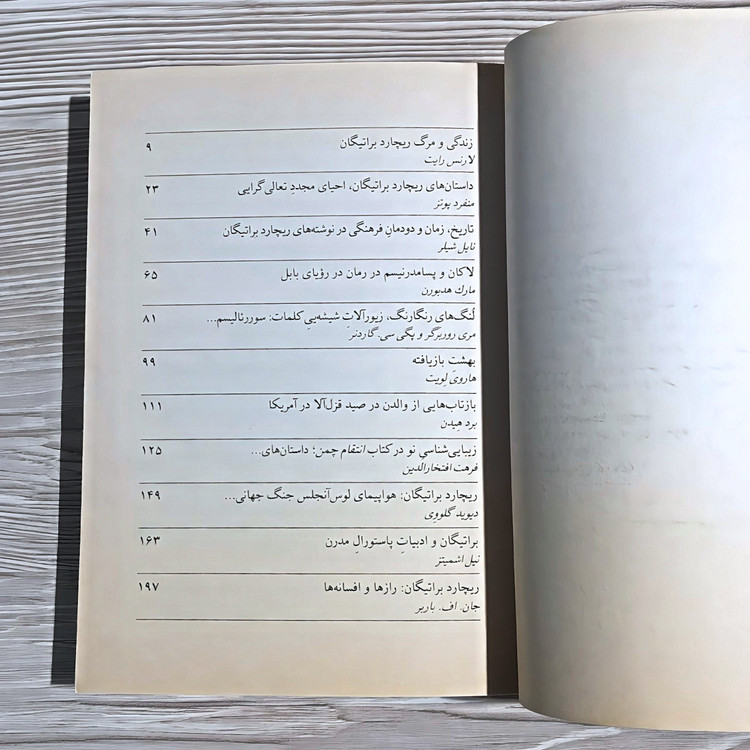 زندگی و مرگ ریچارد براتیگان ۹
لارنس رایت
داستان‌های ریچارد براتیگان، احیای مجددِ تعالی‌گرایی ۲۳
منفرد پوتز
تاریخ، زمان و دودمانِ فرهنگی در نوشته‌های ریچارد براتیگان ۴۱
نایل شیلر
لاکان و پسامدرنیسم در رمان در رؤیای بابل ۶۵
مارک هدبورن
لُنگ‌های رنگارنگ، زیورآلاتِ شیشه‌ییِ کلمات: سوررئالیسم... ۸۱
مری روربرگر و پگی سی. گاردنر
بهشت بازیافته ۹۹
هاروی لِویت
بازتاب‌هایی از والدن در صید قزل‌آلا در آمریکا ۱۱۱
برد هِیدن
زیبایی‌شناسیِ نو در کتاب انتقام چمن؛ داستان‌های... ۱۲۵
فرهت افتخارالدین
ریچارد براتیگان: هواپیمای لوس‌آنجلس جنگ جهانی... ۱۴۹
دیوید گلووِی
براتیگان و ادبیاتِ پاستورالِ مدرن ۱۶۳
نیل اشمیتز
ریچارد براتیگان: رازها و افسانه‌ها ۱۹۷
جان. اف. باربر